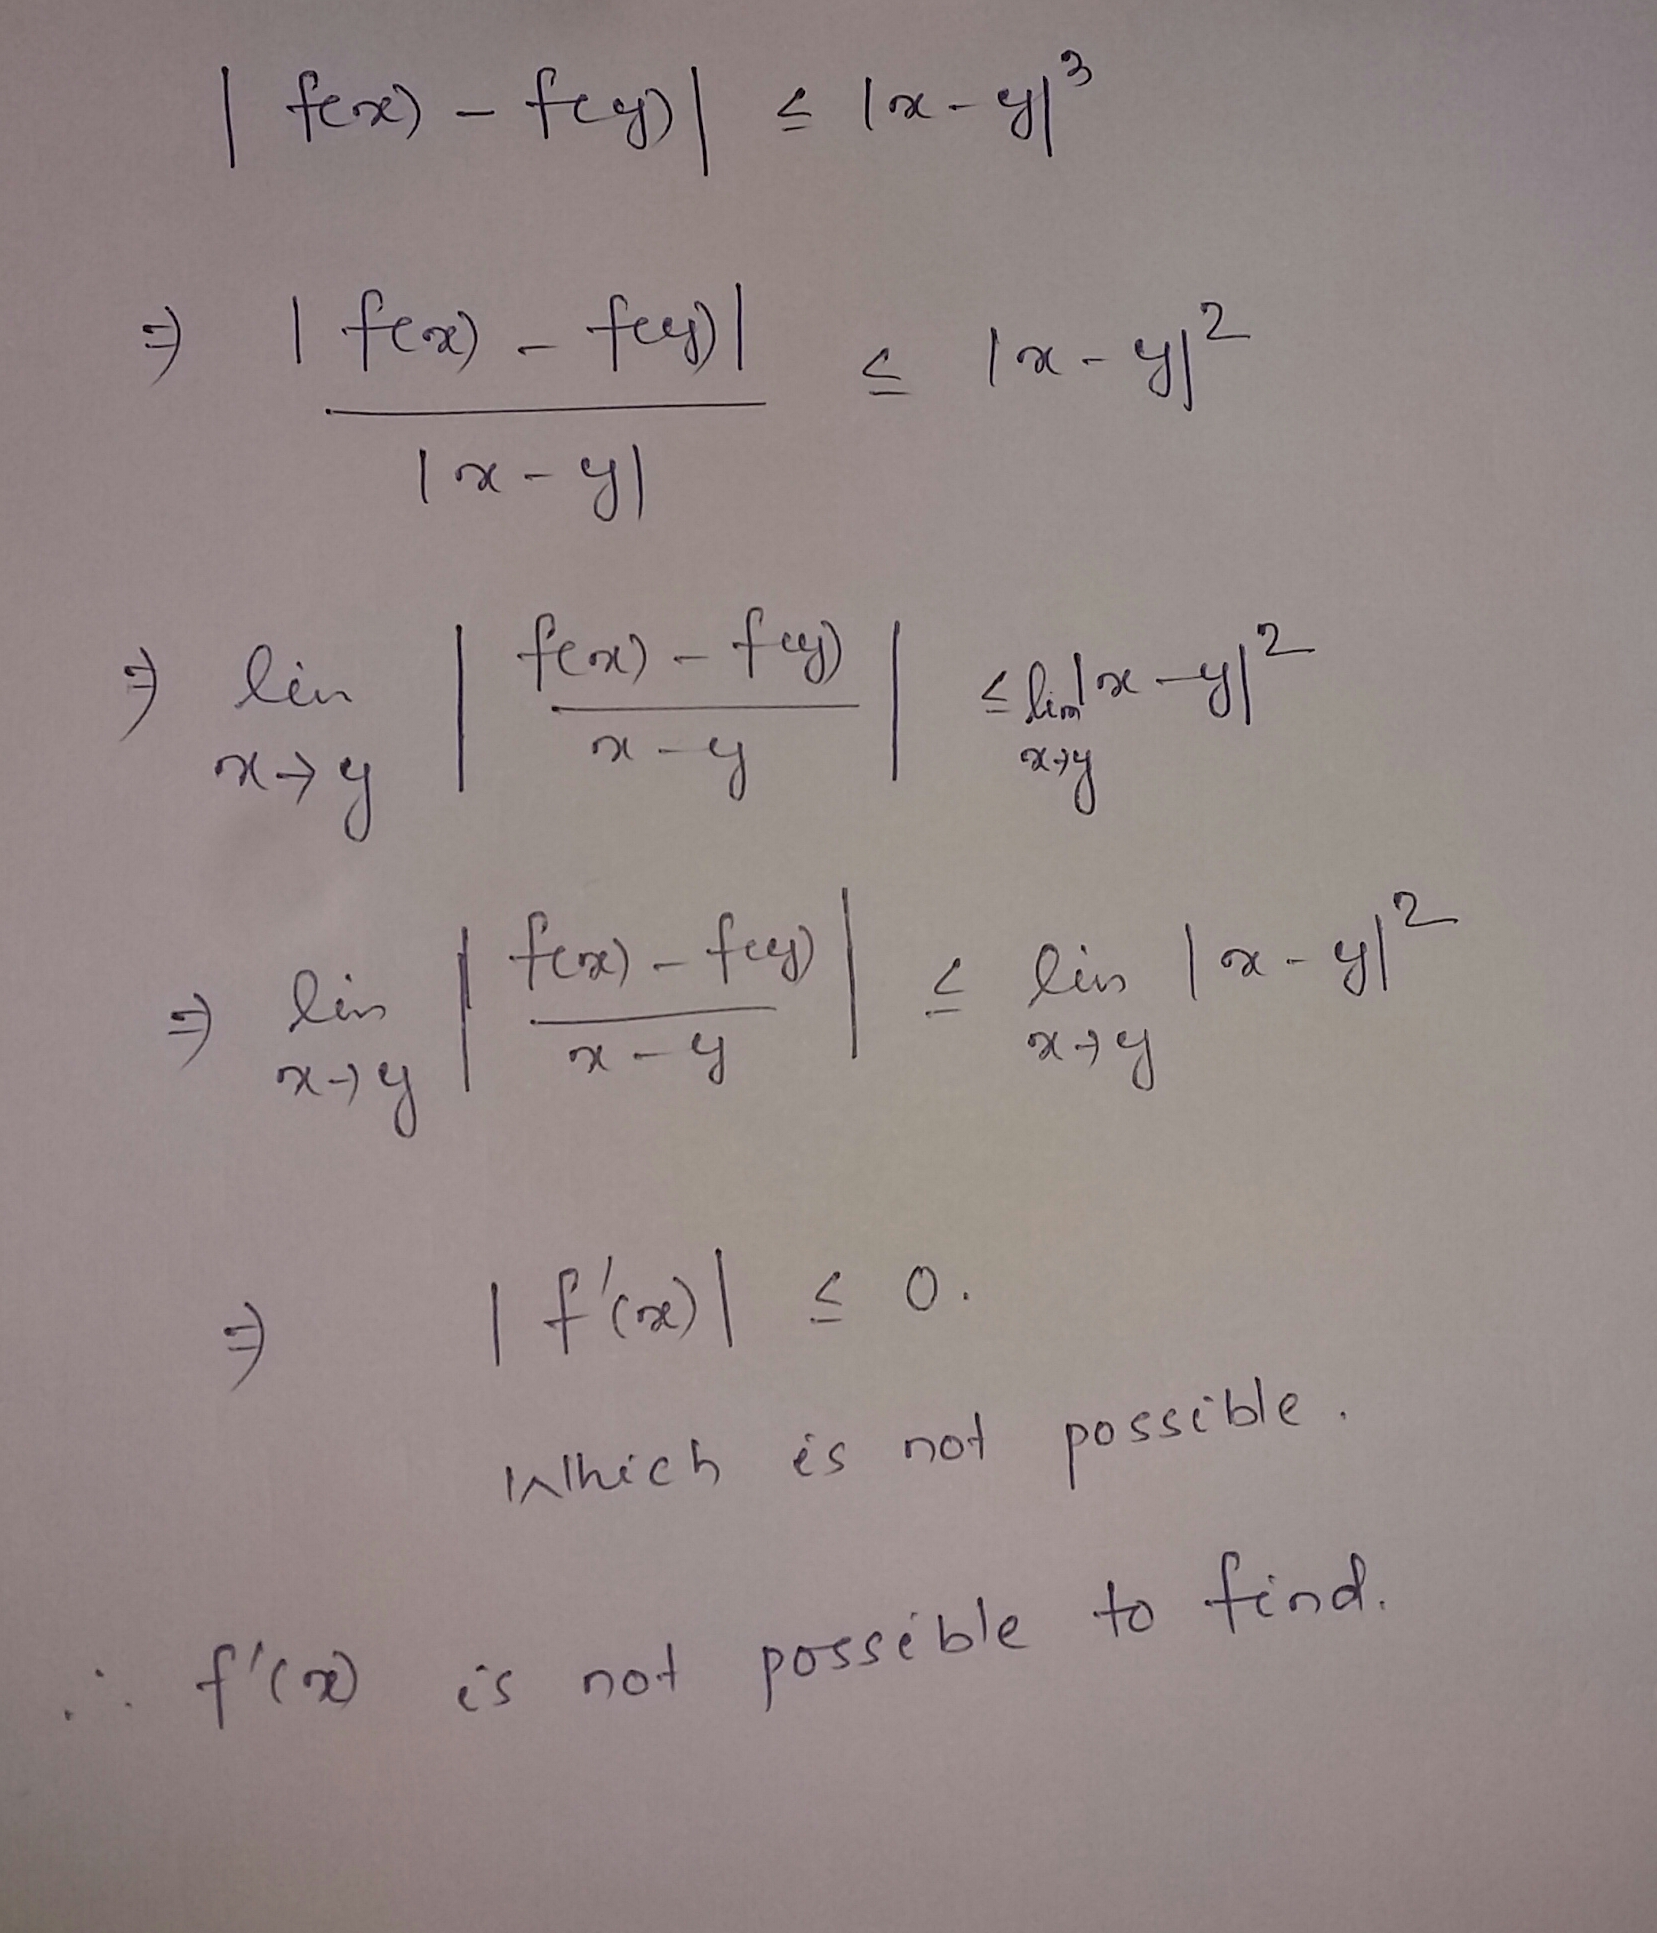 | f(x) - f(y) | ≤ |x-y|³
⇒ | f(x) - f(y) | / |x-y| ≤ |x-y|²
⇒ lim x→y | f(x) - f(y) / x-y | ≤ lim x→y |x-y|²
⇒ lim x→y | f(x) - f(y) / x-y | ≤ lim x→y |x-y|²
⇒ | f'(x) | ≤ 0.
Which is not possible.
∴ f'(x) is not possible to find.